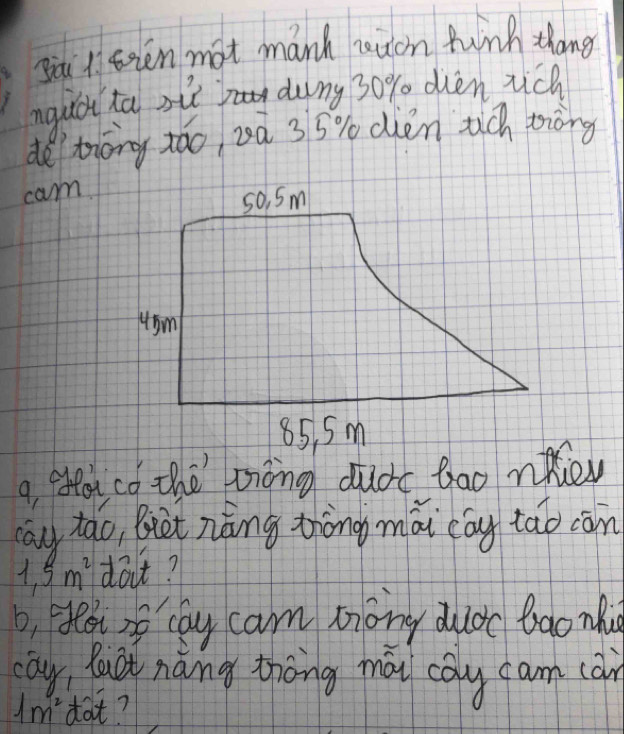 Bài 1: Trên một mảnh vườn hình thang
người ta sử dụng 30% diện tích
để trồng táo, và 35% diện tích trồng
cam.
50,5m
45m
85,5m
a, Hỏi có thể trồng được bao nhiêu
cây táo, biết rằng trồng mỗi cây táo cần
1,5 m² đất?
b, Hỏi số cây cam trồng được bao nhiê
cây, biết rằng trồng mỗi cây cam cần
1m² đất?